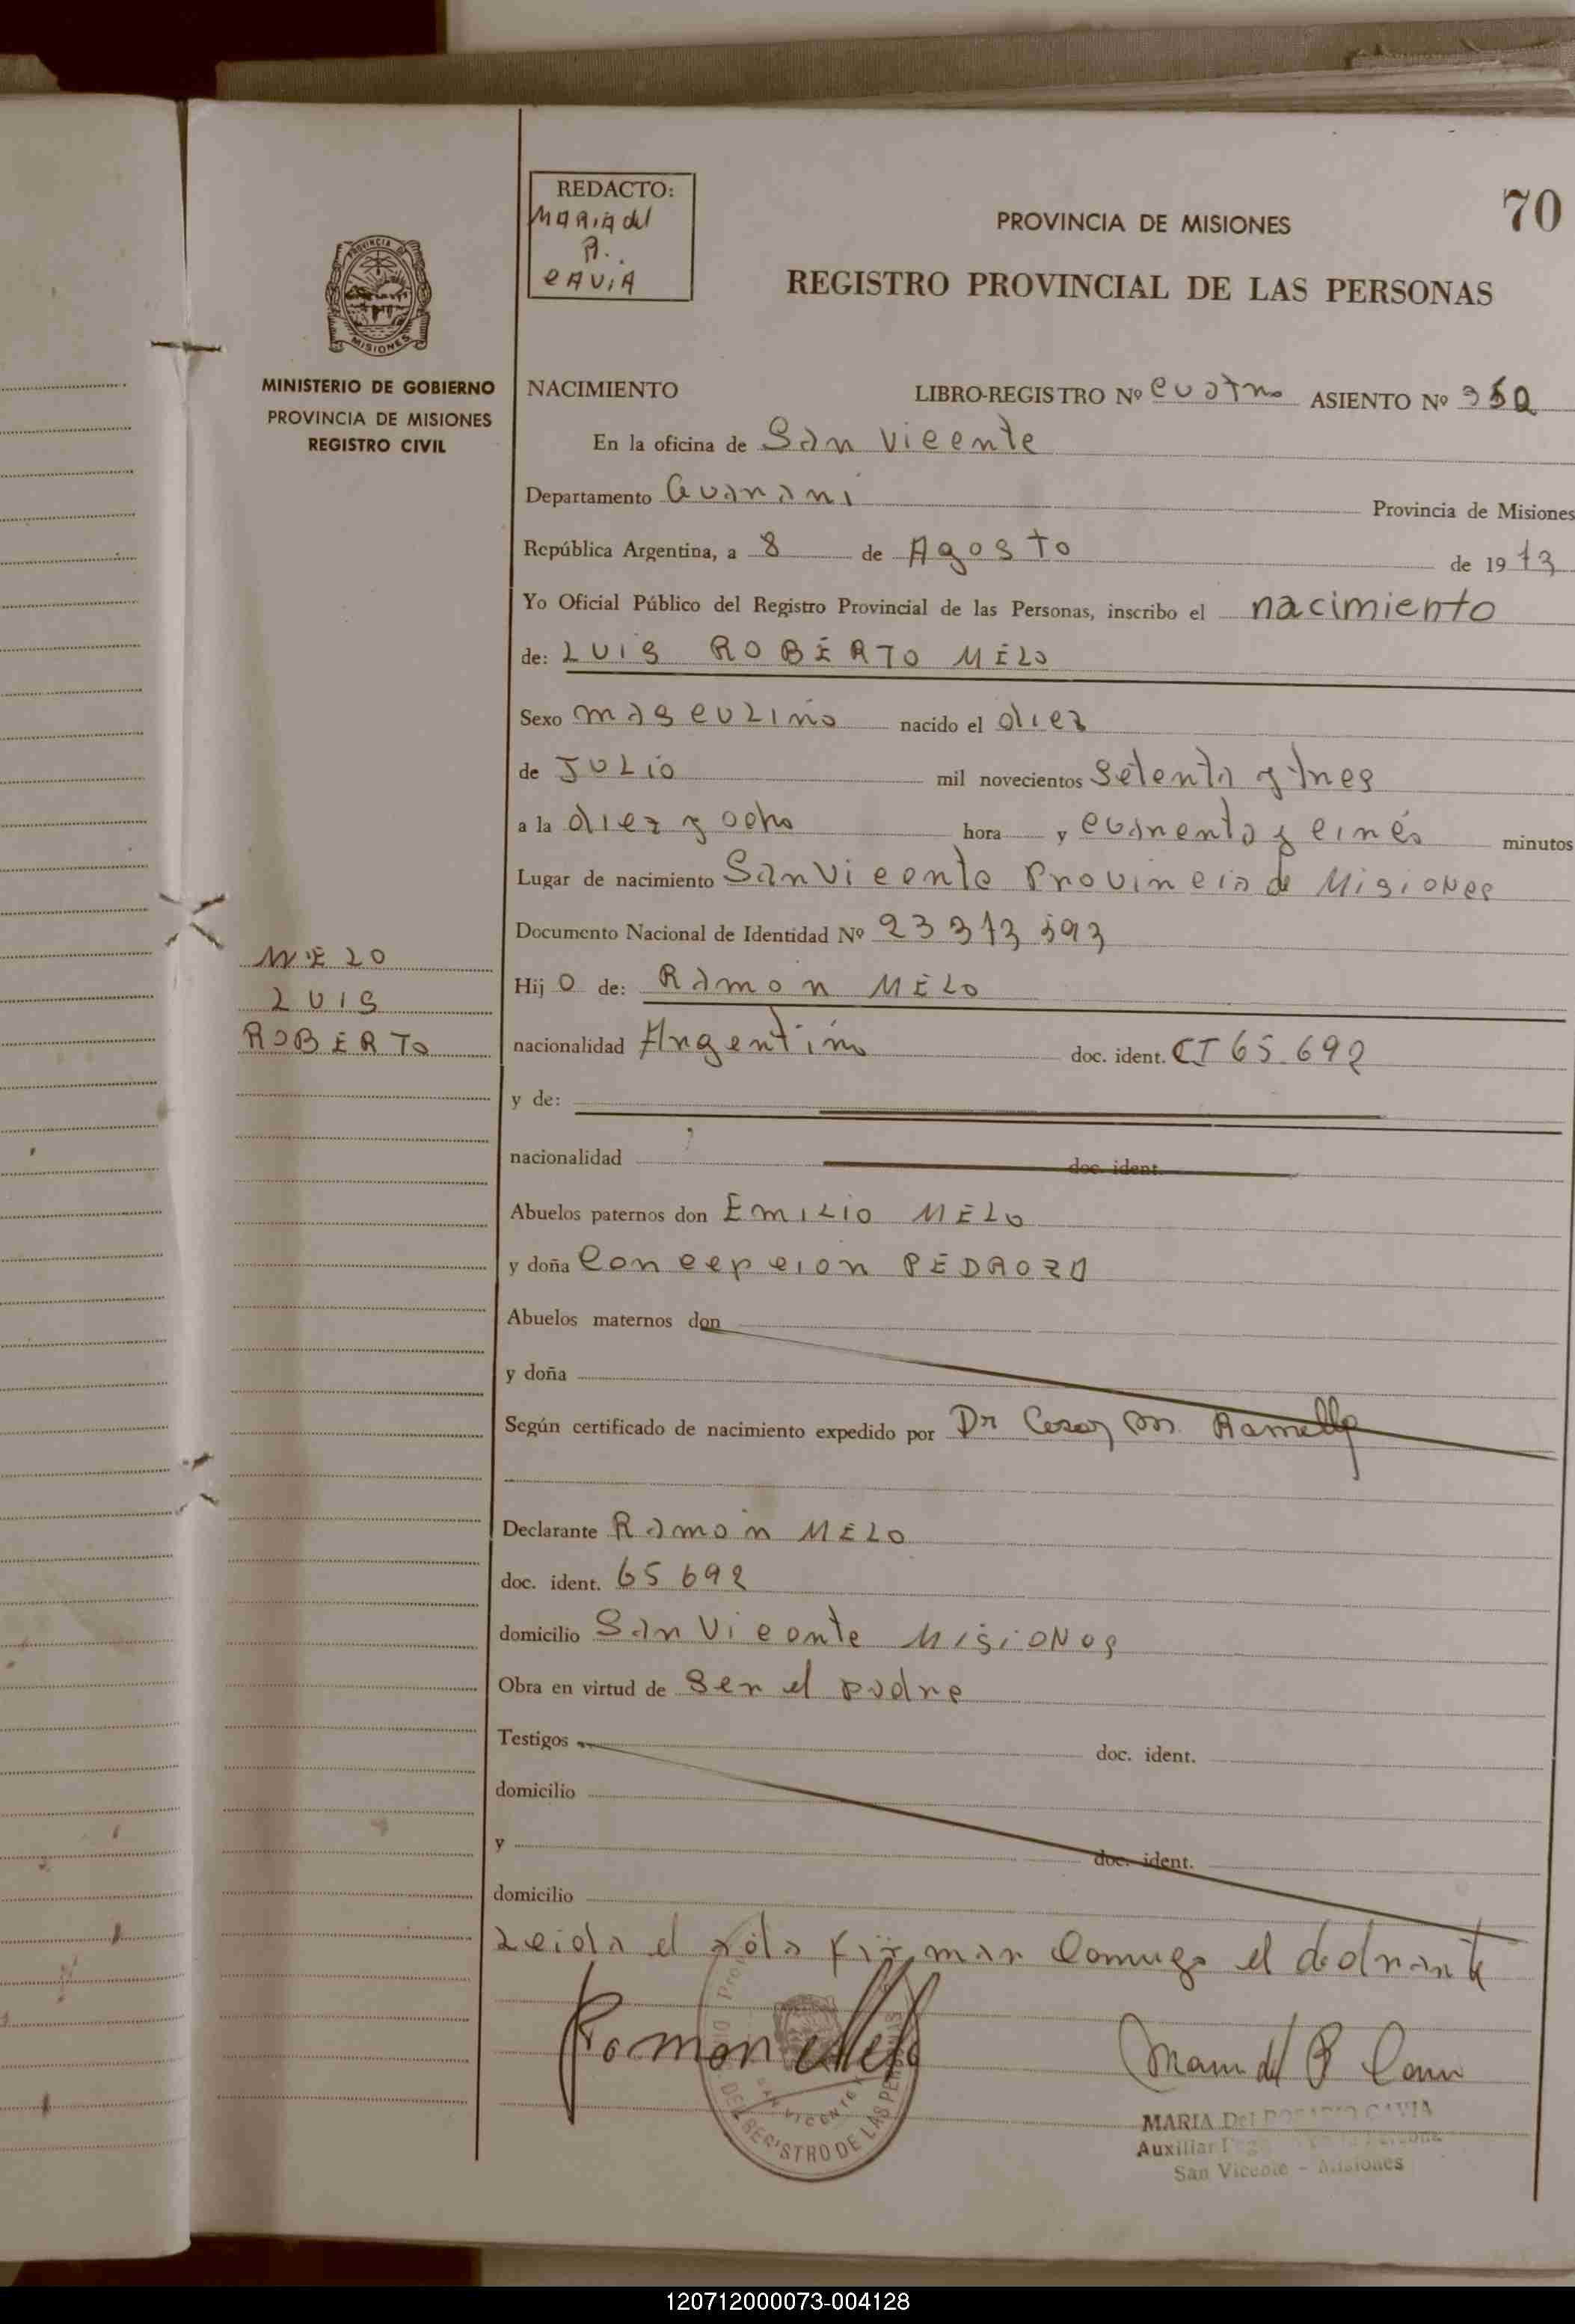 70
REDACTO:
MARIA del
R.
CAVIA
PROVINCIA DE MISIONES
REGISTRO PROVINCIAL DE LAS PERSONAS
PROVINCIA DE
MISIONES
MINISTERIO DE GOBIERNO
PROVINCIA DE MISIONES
REGISTRO CIVIL
NACIMIENTO LIBRO-REGISTRO Nº cuatro ASIENTO Nº
En la oficina de San Vicente
Departamento Guarani Provincia de Misiones
República Argentina, a 8 de Agosto de 1973
Yo Oficial Público del Registro Provincial de las Personas, inscribo el nacimiento
de: LUIS ROBERTO MELO
Sexo masculino nacido el diez
de JULIO mil novecientos Setenta y tres
a la diez y ocho hora y cuarenta y cinco minutos
Lugar de nacimiento San Vicente Provincia de Misiones
Documento Nacional de Identidad Nº 23 373 593
MELO
LUIS
ROBERTO
Hij o de: Ramon MELO
nacionalidad Argentino doc. ident. CI 65.692
y de:
nacionalidad doc. ident.
Abuelos paternos don EMILIO MELO
y doña Concepcion PEDROZO
Abuelos maternos don
y doña
Según certificado de nacimiento expedido por Dr Cesar M. Ramella
Declarante Ramon MELO
doc. ident. 65 692
domicilio San Vicente Misiones
Obra en virtud de Ser el padre
Testigos doc. ident.
domicilio
y doc. ident.
domicilio
Leida el acta firman conmigo el declarante
Ramon Melo
SAN VICENTE
DEL REGISTRO DE LAS PERSONAS
MARIA Del ROSARIO CAVIA
Auxiliar
San Vicente - Misiones
120712000073-004128